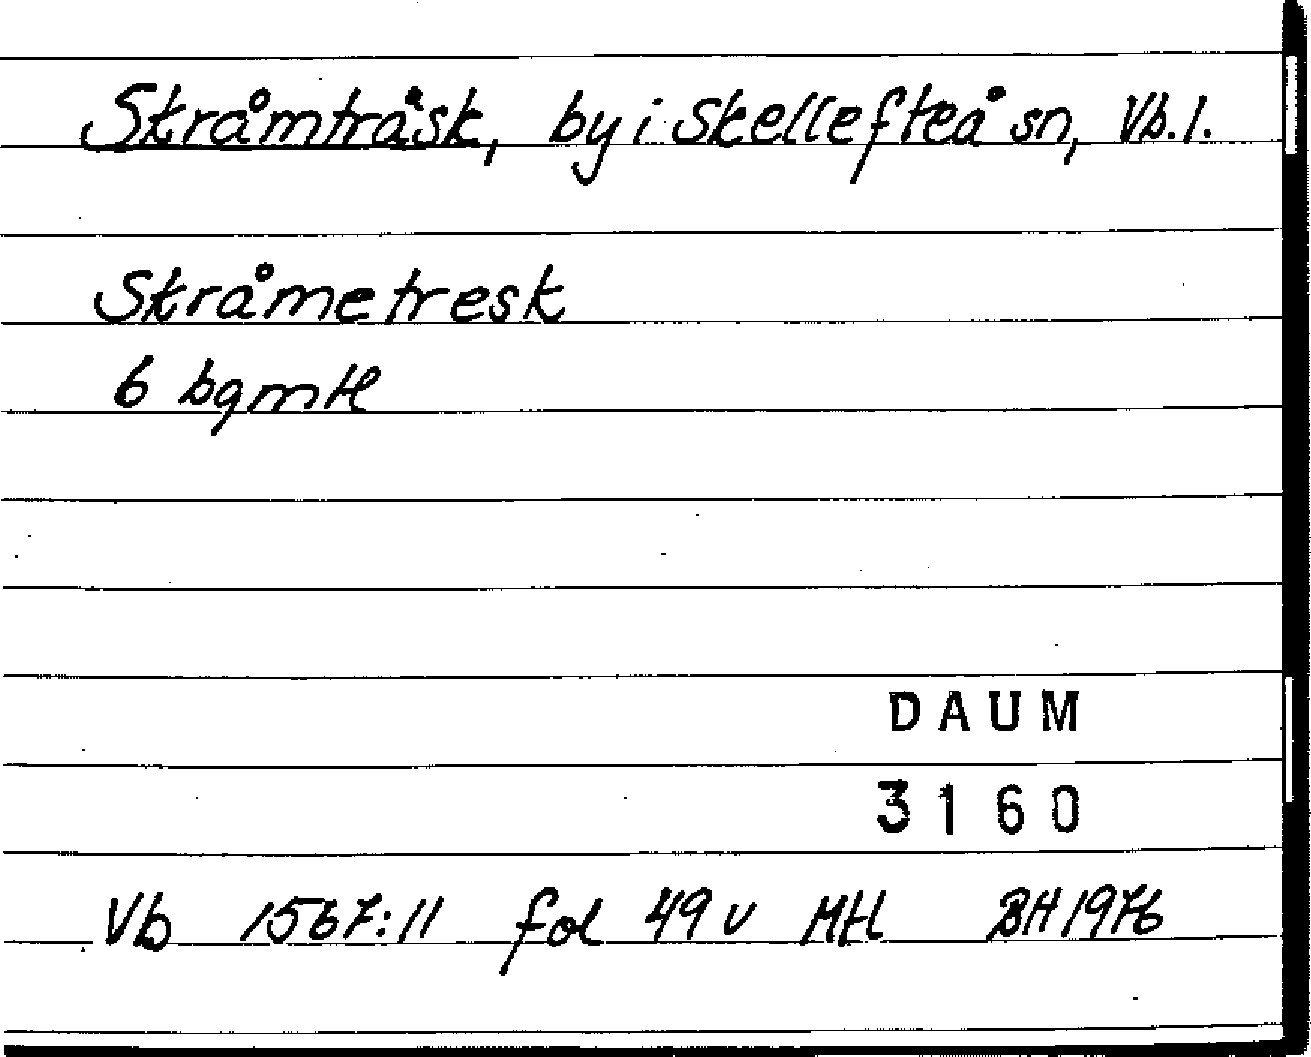 Skråmträsk, by i Skellefteå sn, Vb. l.
Skråmetresk
6 bgmtl
DAUM
3160
Vb 1567:11 fol 49 v Mtl BH 1976